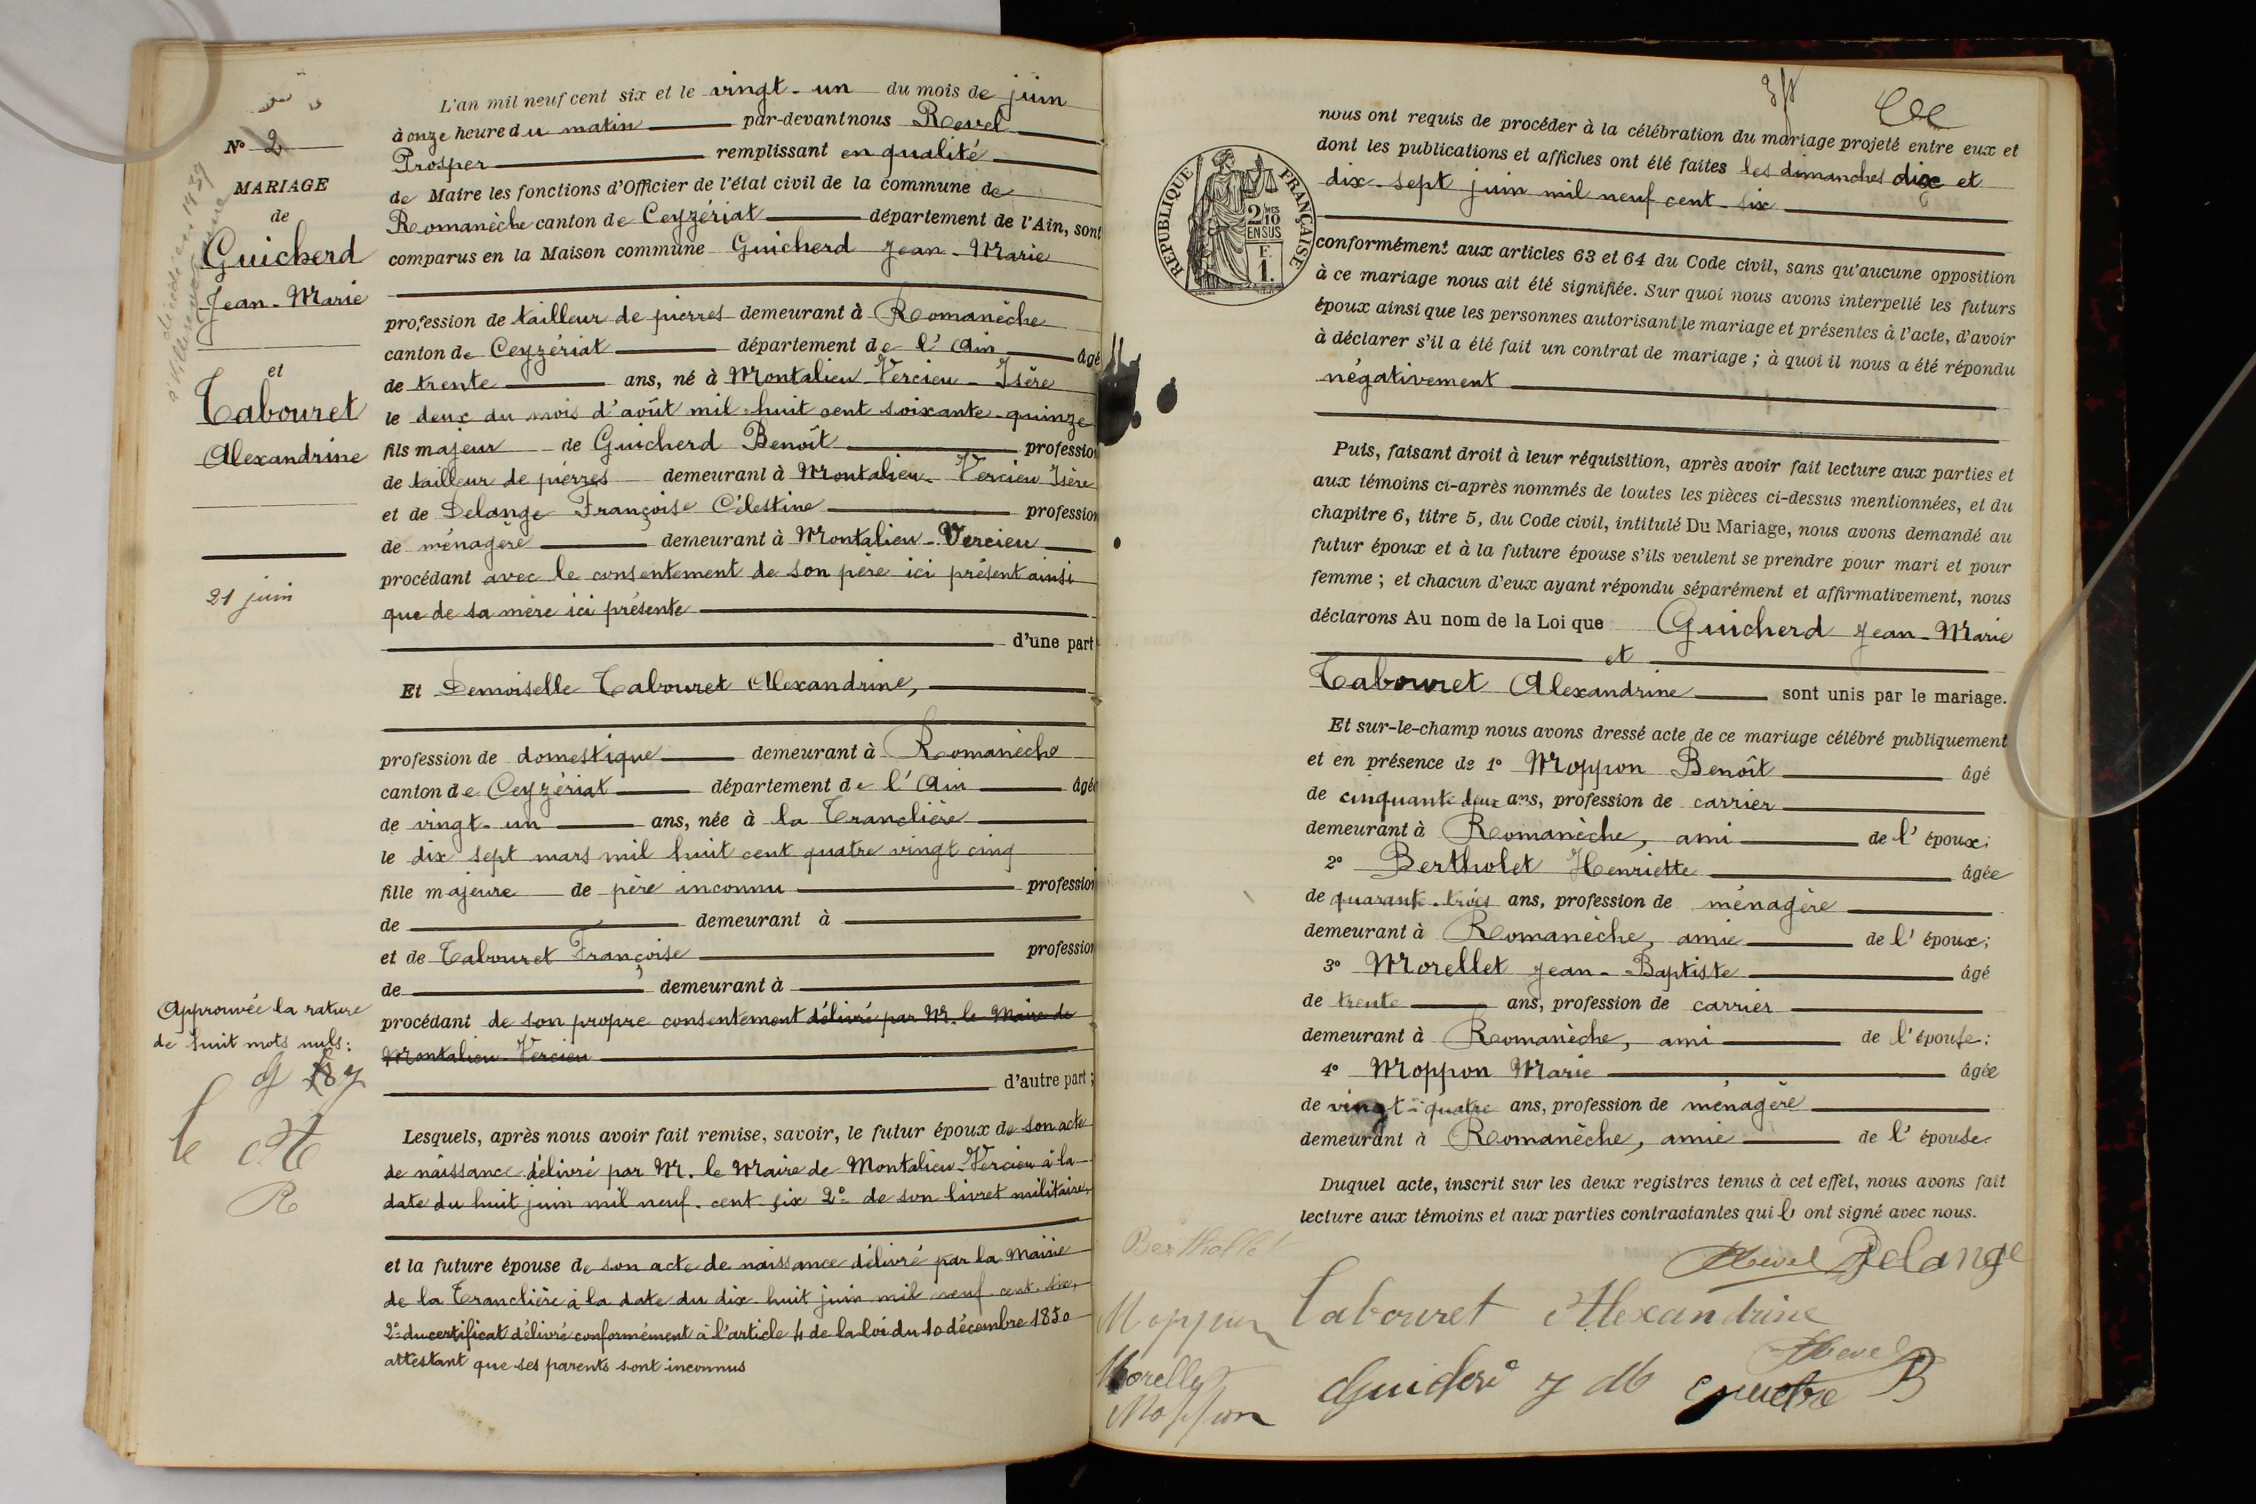 N° 2
MARIAGE
de
Guicherd
Jean-Marie
et
Tabouret
Alexandrine
21 juin
Approuvée la rature
de huit mots nuls:
L'an mil neuf cent six et le vingt-un du mois de juin
à onze heure du matin par-devant nous Revel
Prosper remplissant en qualité
de Maire les fonctions d'Officier de l'état civil de la commune de
Romanèche canton de Ceyzériat département de l'Ain, sont
comparus en la Maison commune Guicherd Jean-Marie
profession de tailleur de pierres demeurant à Romanèche
canton de Ceyzériat département de l'Ain âgé
de trente ans, né à Montalieu-Vercieu-Isère
le deux du mois d'août mil-huit cent soixante-quinze
fils majeur de Guicherd Benoît profession
de tailleur de pierres demeurant à Montalieu-Vercieu Isère
et de Delange Françoise Célestine profession
de ménagère demeurant à Montalieu-Vercieu
procédant avec le consentement de son père ici présent ainsi
que de sa mère ici présente
d'une part
Et Demoiselle Tabouret Alexandrine,
profession de domestique demeurant à Romanèche
canton de Ceyzériat département de l'Ain âgée
de vingt-un ans, née à la Tranclière
le dix sept mars mil huit cent quatre vingt cinq
fille majeure de père inconnu profession
de demeurant à
et de Tabouret Françoise profession
de demeurant à
procédant de son propre consentement délivré par M. le Maire de
Montalieu-Vercieu
d'autre part;
Lesquels, après nous avoir fait remise, savoir, le futur époux de son acte
de naissance délivré par M. le Maire de Montalieu-Vercieu à la
date du huit juin mil neuf-cent-six 2° de son livret militaire,
et la future épouse de son acte de naissance délivré par la Mairie
de la Tranclière à la date du dix-huit juin mil neuf-cent-six,
2° du certificat délivré conformément à l'article 4 de la loi du 10 décembre 1850
attestant que ses parents sont inconnus
RÉPUBLIQUE FRANÇAISE
2/10 MES
EN SUS
F.
1.
nous ont requis de procéder à la célébration du mariage projeté entre eux et
dont les publications et affiches ont été faites les dimanches dix et
dix-sept juin mil neuf cent-six
conformément aux articles 63 et 64 du Code civil, sans qu'aucune opposition
à ce mariage nous ait été signifiée. Sur quoi nous avons interpellé les futurs
époux ainsi que les personnes autorisant le mariage et présentes à l'acte, d'avoir
à déclarer s'il a été fait un contrat de mariage; à quoi il nous a été répondu
négativement
Puis, faisant droit à leur réquisition, après avoir fait lecture aux parties et
aux témoins ci-après nommés de toutes les pièces ci-dessus mentionnées, et du
chapitre 6, titre 5, du Code civil, intitulé Du Mariage, nous avons demandé au
futur époux et à la future épouse s'ils veulent se prendre pour mari et pour
femme; et chacun d'eux ayant répondu séparément et affirmativement, nous
déclarons Au nom de la Loi que Guicherd Jean-Marie
et
Tabouret Alexandrine sont unis par le mariage.
Et sur-le-champ nous avons dressé acte de ce mariage célébré publiquement
et en présence de 1° Moppon Benoît âgé
de cinquante deux ans, profession de carrier
demeurant à Romanèche, ami de l'époux;
2° Bertholet Henriette âgée
de quarante-trois ans, profession de ménagère
demeurant à Romanèche, amie de l'époux;
3° Morellet Jean-Baptiste âgé
de trente ans, profession de carrier
demeurant à Romanèche, ami de l'épouse;
4° Moppon Marie âgée
de vingt-quatre ans, profession de ménagère
demeurant à Romanèche, amie de l'épouse
Duquel acte, inscrit sur les deux registres tenus à cet effet, nous avons fait
lecture aux témoins et aux parties contractantes qui ont signé avec nous.
Revel Delange
Tabouret Alexandrine
Moppon